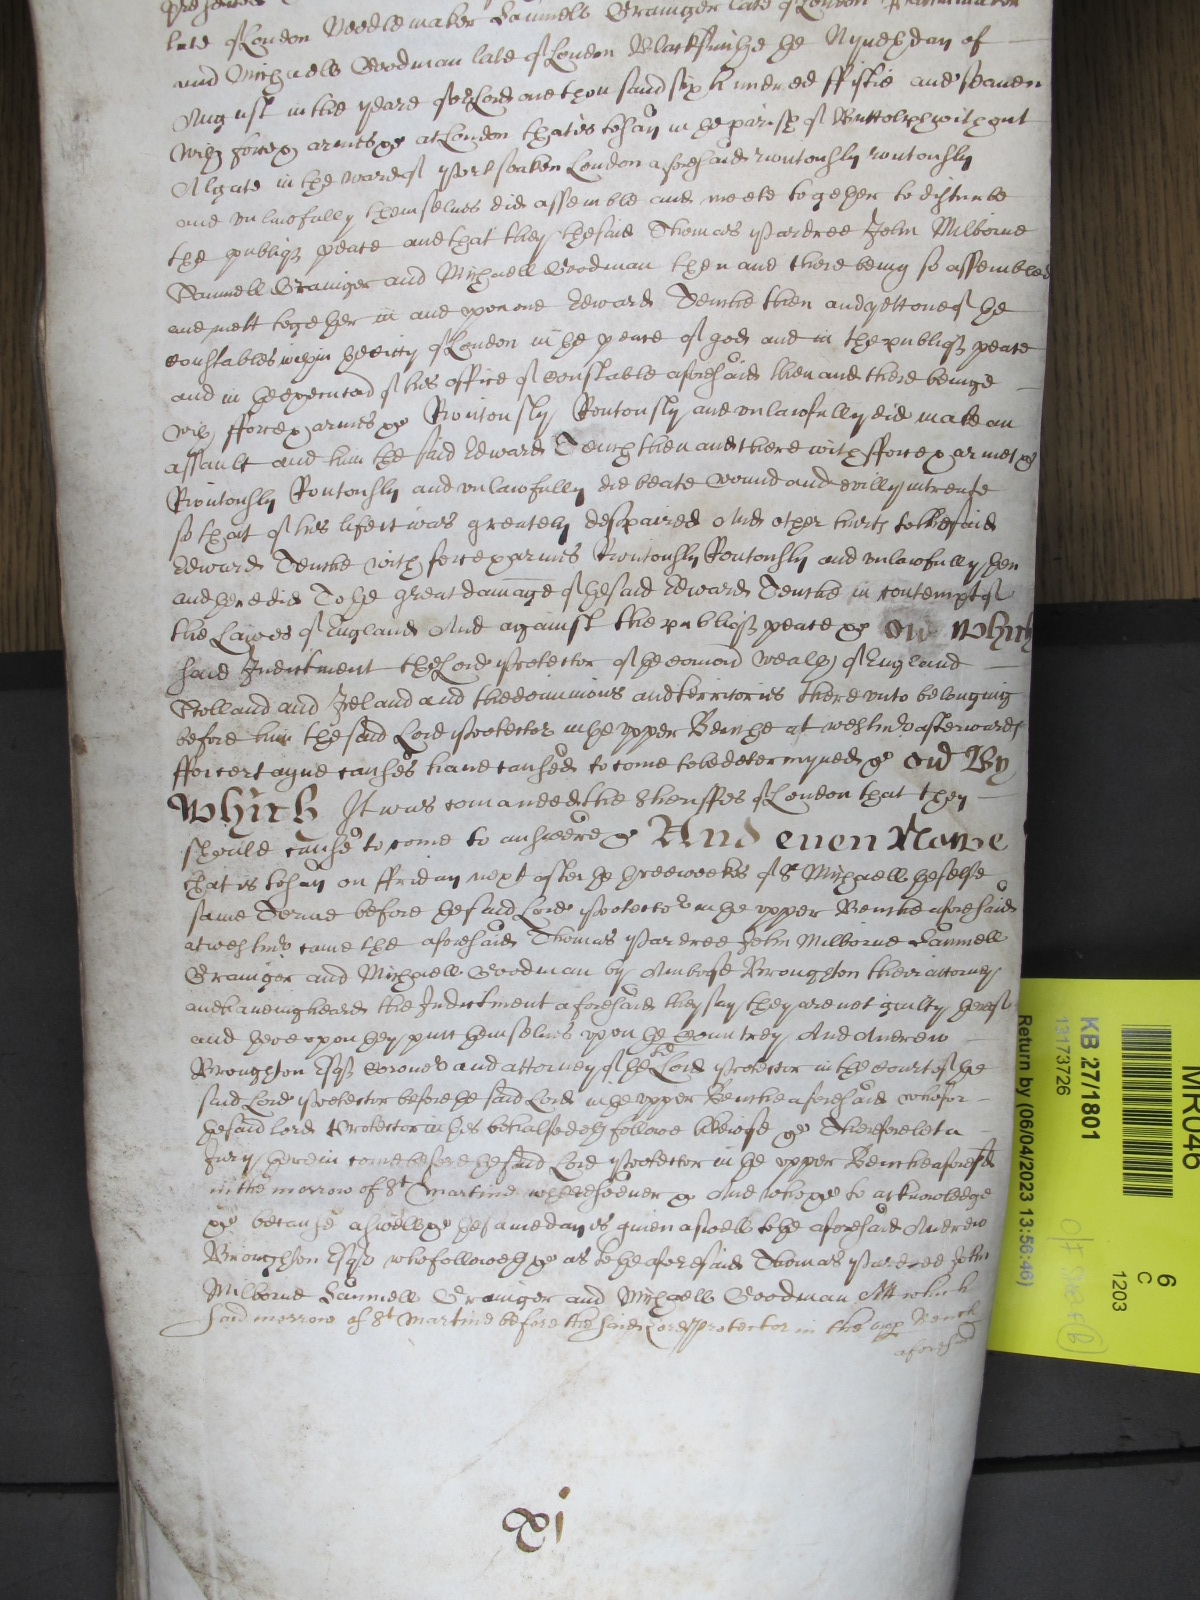 late of London Needlemaker Samuell Grainger late of London
and Michaell Goodman late of London Blacksmithe the Nynth day of
August in the yeare of our Lord one thousand six hundred ffiftie and seaven
with force & armes &c at London that is to say in the parish of Buttolph without
Algate in the ward of Portsoaken London aforesaid rioutously routously
and unlawfully themselves did assemble and meete together to disturbe
the publiq peace and that they the said Thomas Pardree John Milborne
Samuell Grainger and Michaell Goodman then and there being so assembled
and mett together in and upon one Edward Tenche then and yett one of the
constables within the citty of London in the peace of god and in the publiq peace
and in the execucon of his office of constable aforesaid then and there beinge
with fforce & armes &c Rioutously Routously and unlawfully did make an
assault and him the said Edward Tench then and there with fforce & armes &c
Rioutously Routously and unlawfully did beate wound and evilly intreate
so that of his life it was greately despaired And other hurts to the said
Edward Tenche with force & armes Rioutously Routously and unlawfully then
and there did To the great damage of the said Edward Tenche in contempt of
the Lawes of England And against the publiq peace &c On which
said Indictment the Lord Protector of the comon wealth of England
Scotland and Ireland and the dominions and territories thereunto belonging
before him the said Lord Protector in the upper Benche at Westmr afterwards
ffor certayne causes have caused to come to be determyned &c And By
Which It was comanded the Sheriffes of London that they
should cause to come to answere &c And even Nowe
that is to say on ffriday next after the three weekes of St Michaell the selfe
same Terme before the said Lord Protector in the upper Benche aforesaid
at Westmr came the aforesaid Thomas Pardree John Milborne Samuell
Grainger and Michaell Goodman by Ambrose Broughton their attorney
and haveing heard the Indictment aforesaid they say they are not guilty thereof
and hereupon they putt themselves upon the Countrey And Andrew
Broughton Esqr Coroner and attorney of the sd Lord Protector in the court of the
said Lord Protector before the said Lord in the upper Benche aforesaid who for
the said lord Protector in his behalfe doth followe likewise &c Therefore let a
Jury therein come before the said Lord Protector in the upper Benche aforesd
in the morrow of St Martine wheresoever &c And who &c to acknowledge
&c because aswell &c the same day is given aswell to the aforesaid Andrew
Broughton Esqr who followeth &c as to the aforesaid Thomas Pardree John
Milborne Samuell Grainger and Michaell Goodman Att which
said morrow of St Martine before the said Lord Protector in the upp Bench
aforesaid
xi
MR046
KB 27/1801
13173726
Return by (06/04/2023 13:56:46)
6
C
1203